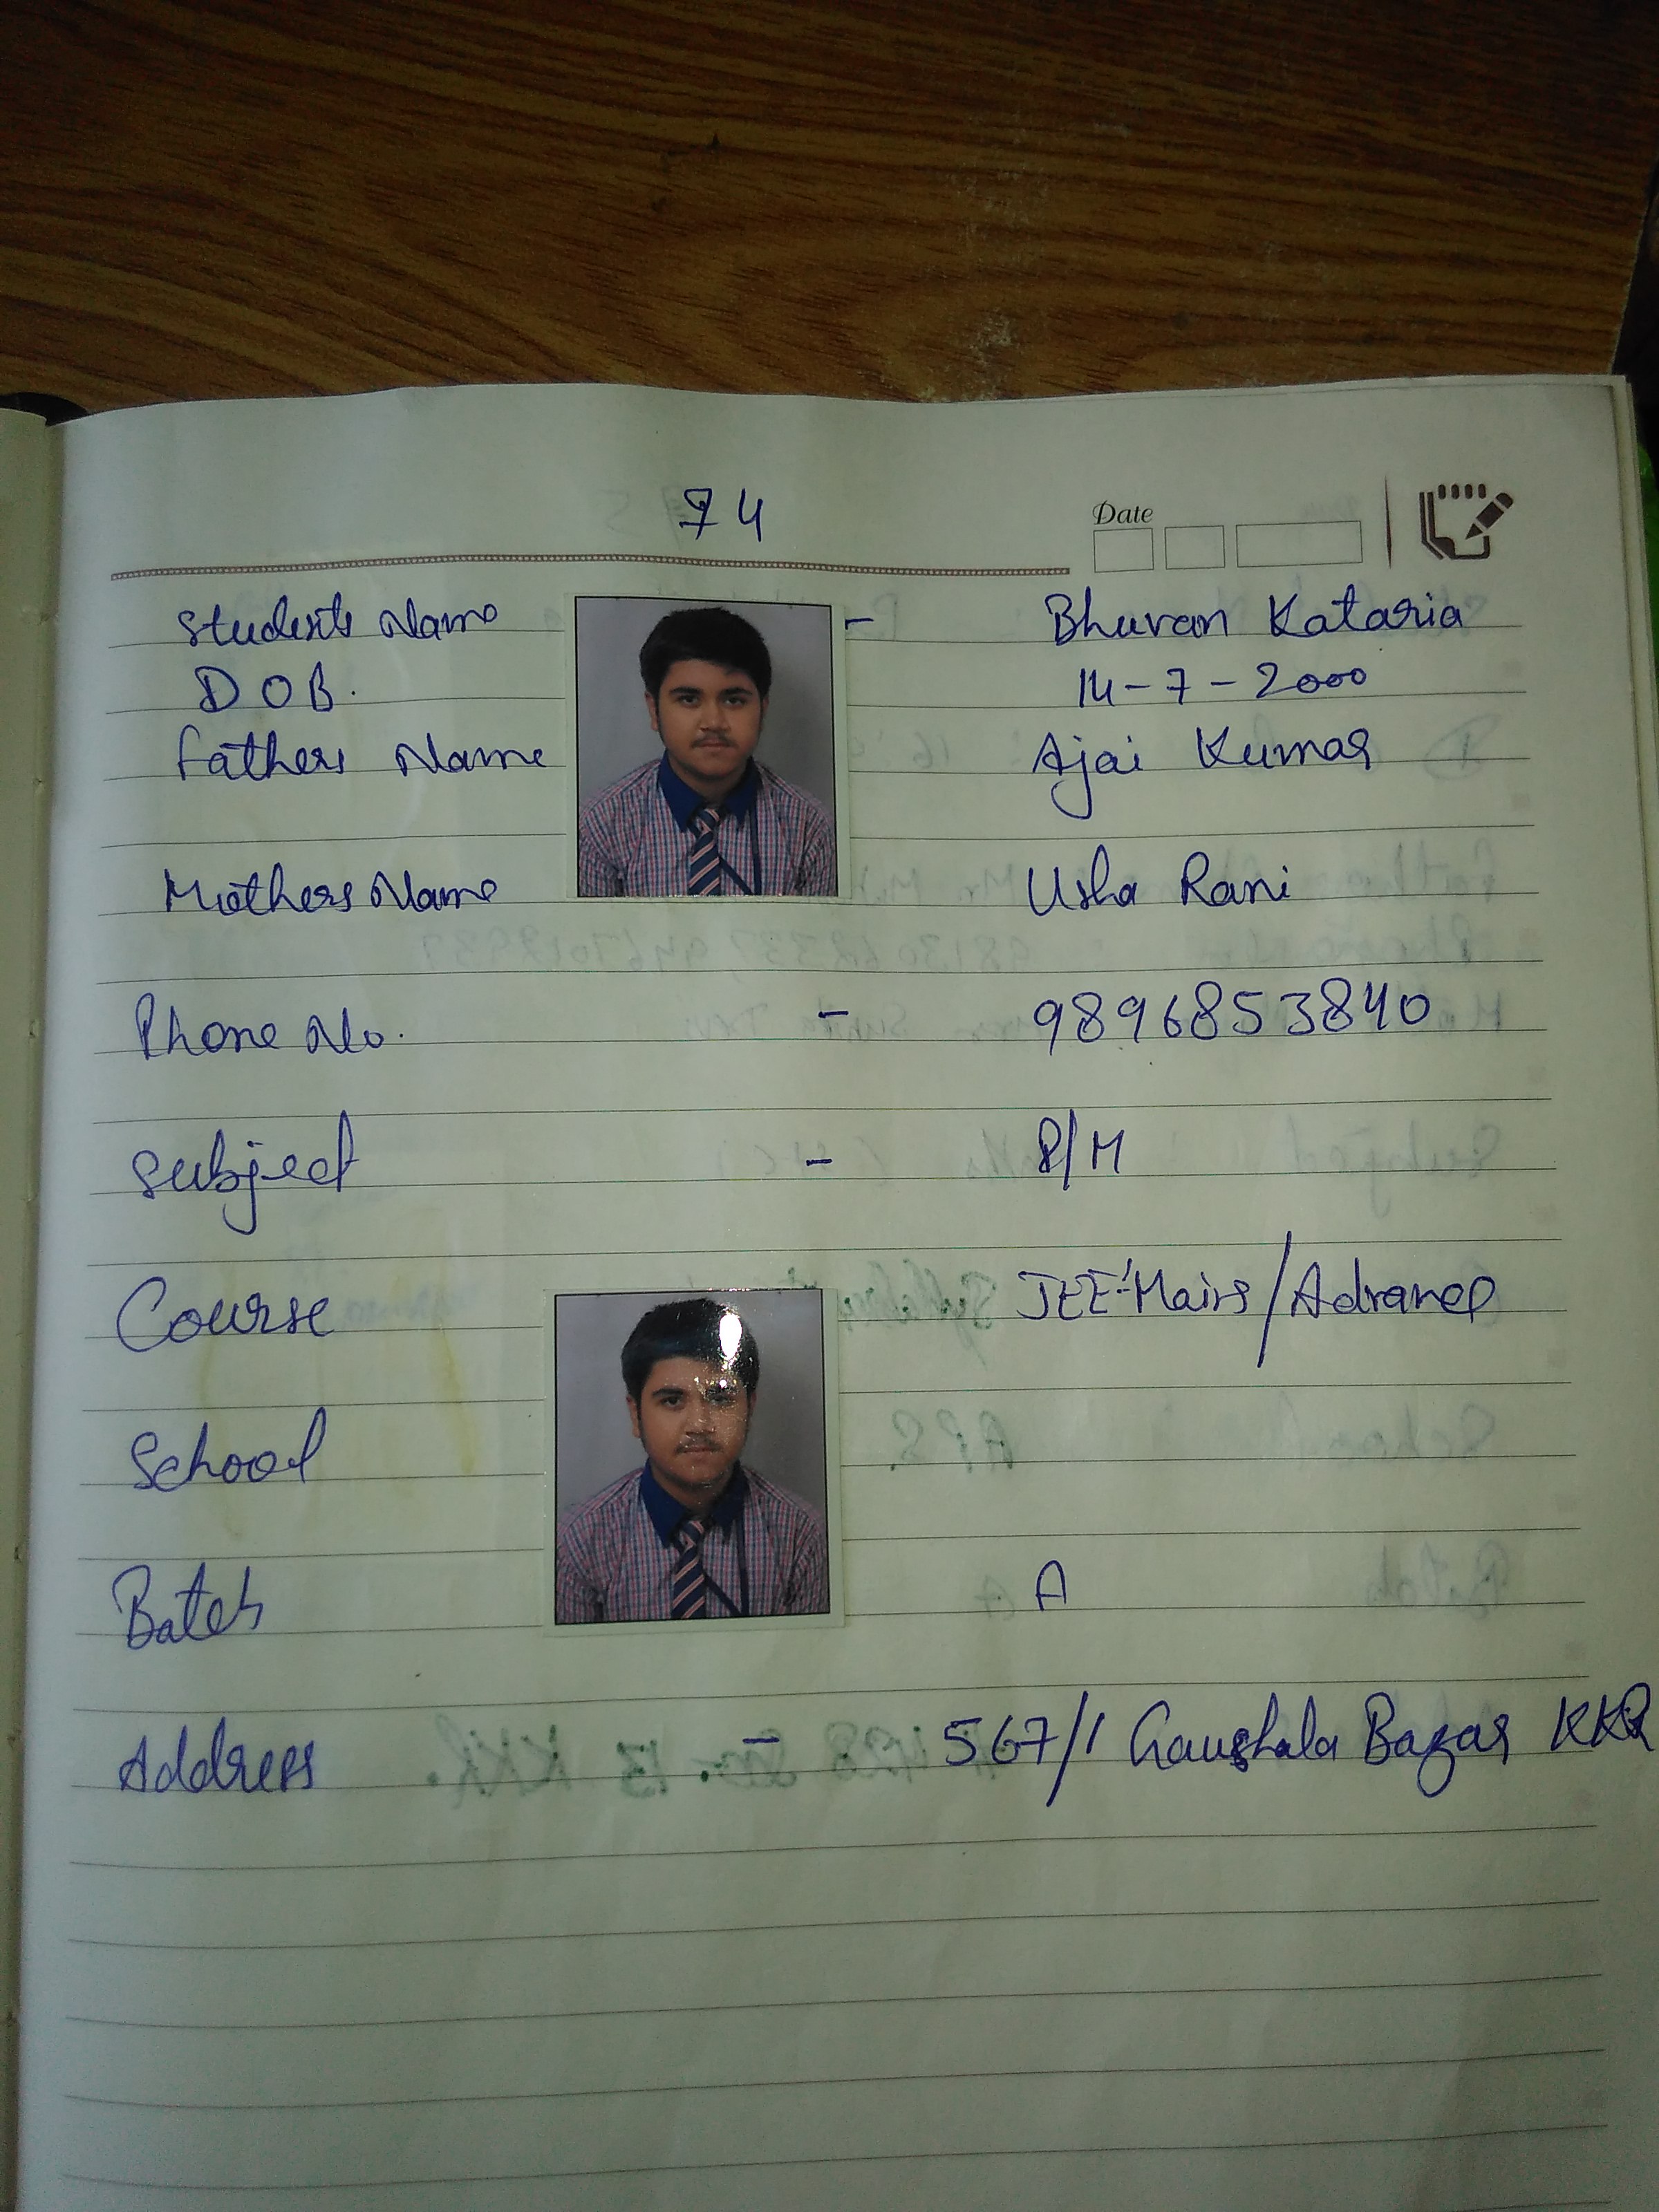 74
Date
Students Name - Bhuvan Kataria
DOB. 14-7-2000
Fathers Name Ajai Kumar
Mothers Name Usha Rani
Phone No. - 9896853840
Subject - P/M
Course JEE-Mains/Advanced
School
Batch A
Address - 567/1 Gaushala Bazar KKR